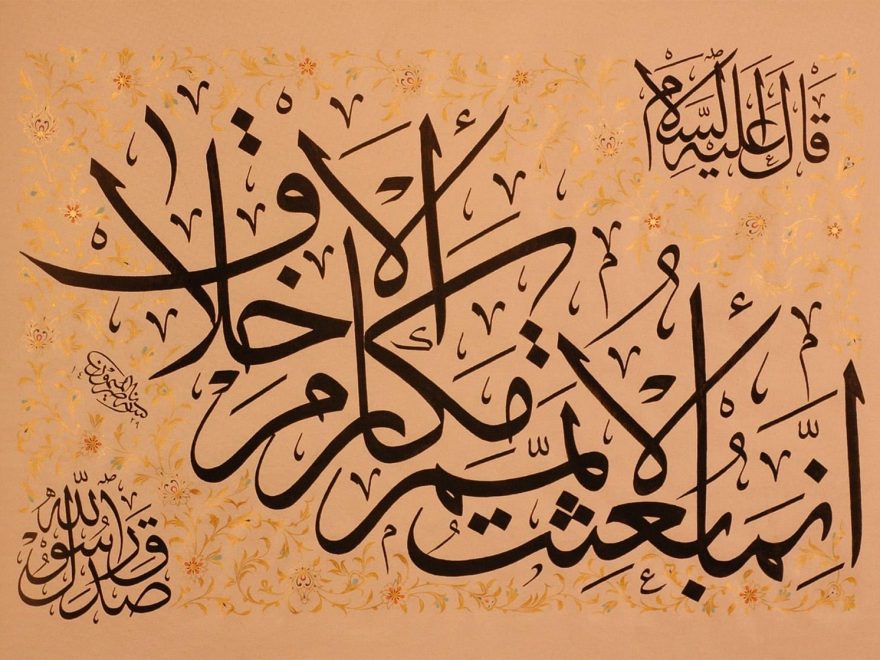 قال عليه السلام
انما بعثت لأتمم مكارم الأخلاق
صدق رسول الله